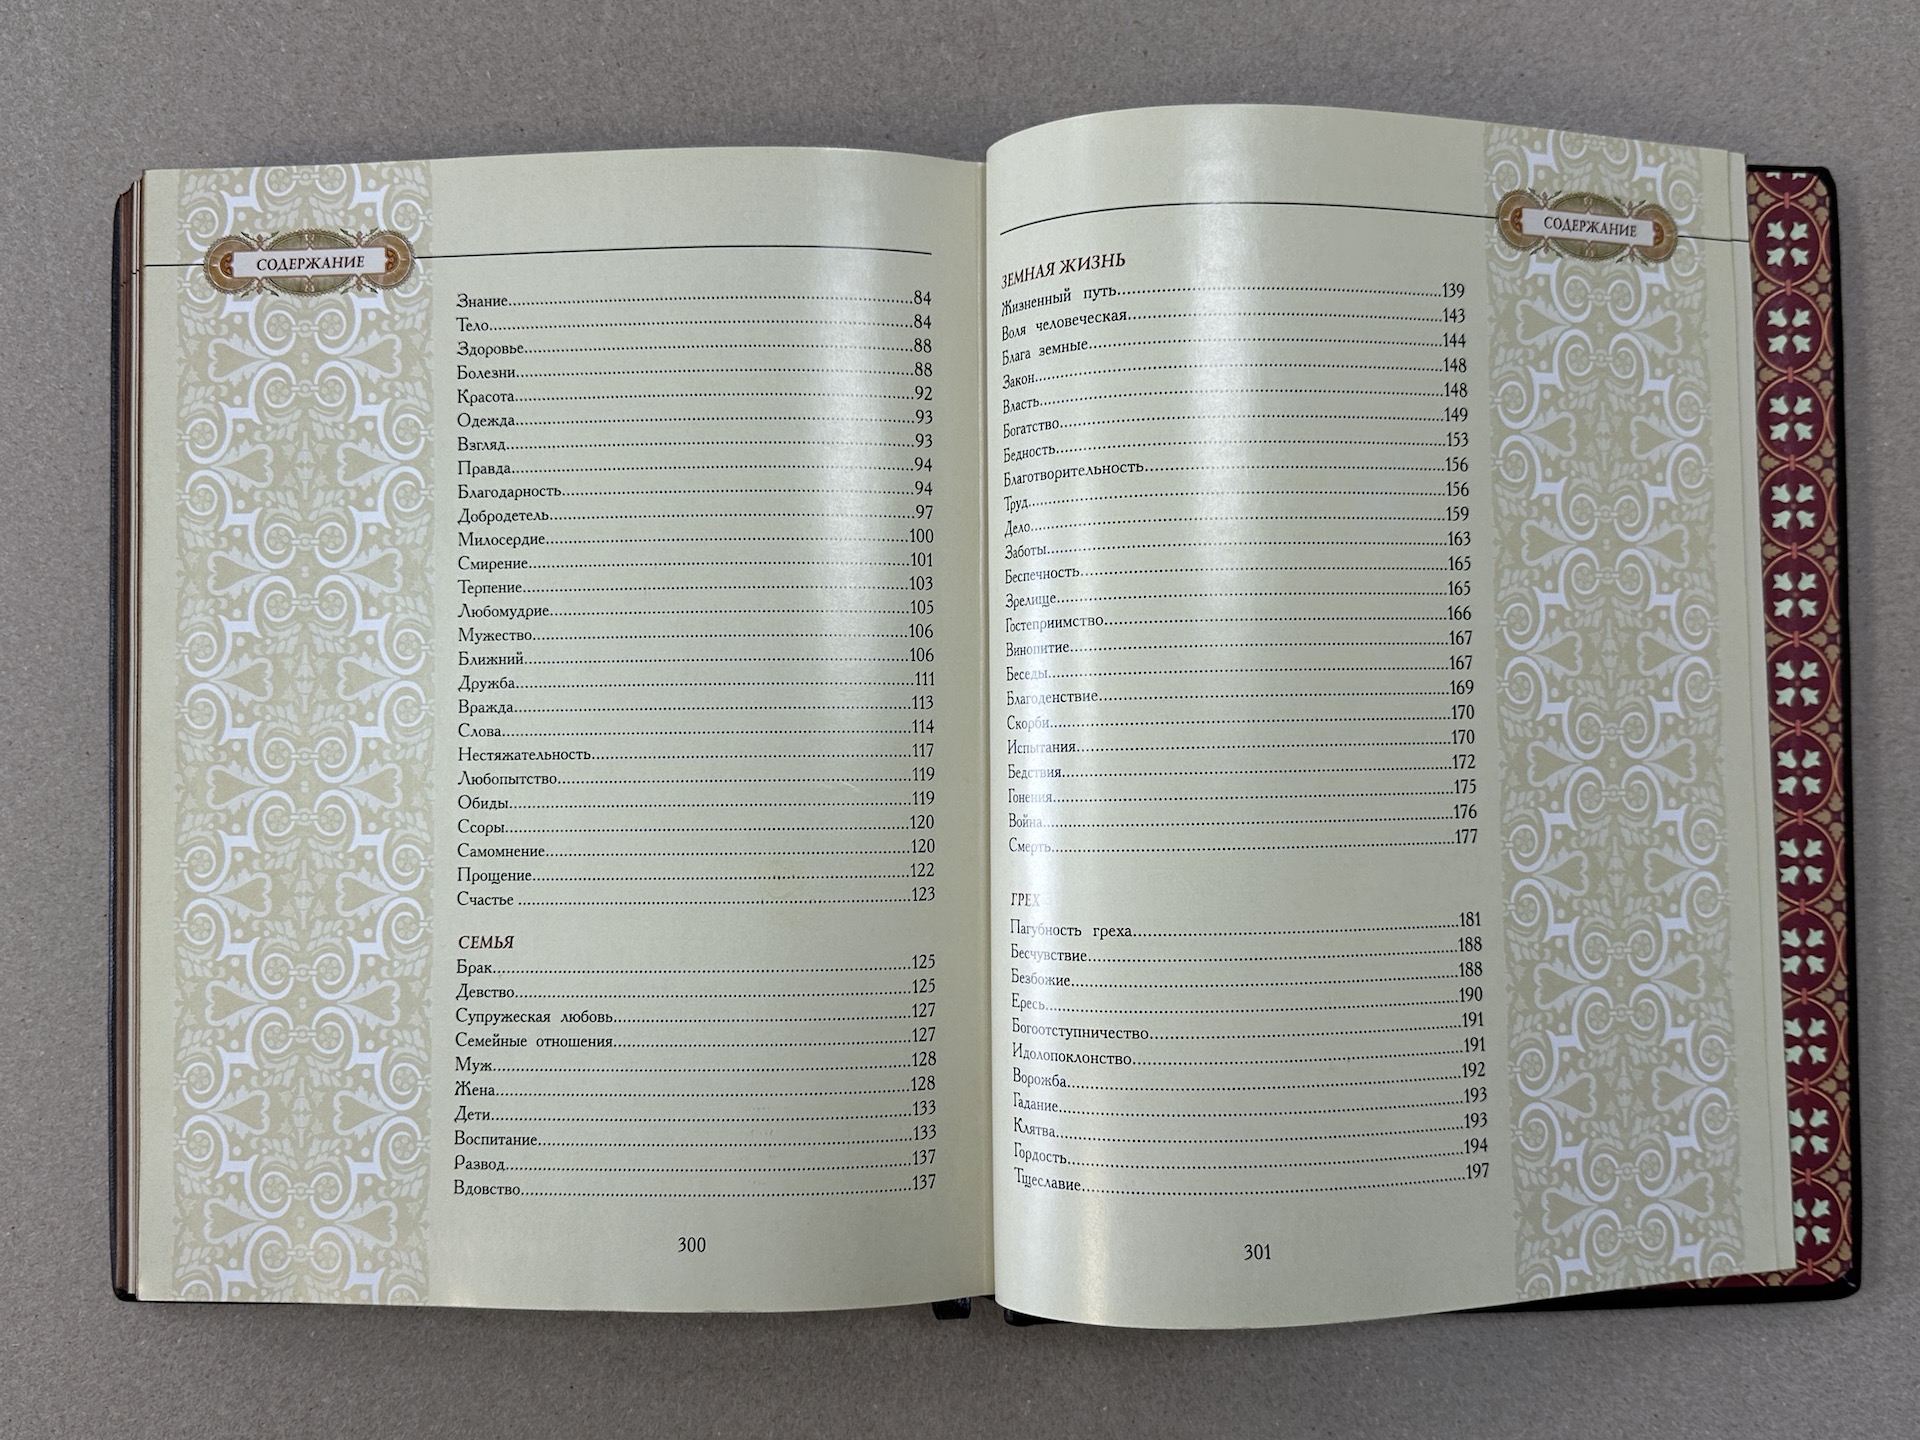 СОДЕРЖАНИЕ
Знание....84
Тело....84
Здоровье....88
Болезни....88
Красота....92
Одежда....93
Взгляд....93
Правда....94
Благодарность....94
Добродетель....97
Милосердие....100
Смирение....101
Терпение....103
Любомудрие....105
Мужество....106
Ближний....106
Дружба....111
Вражда....113
Слова....114
Нестяжательность....117
Любопытство....119
Обиды....119
Ссоры....120
Самомнение....120
Прощение....122
Счастье ....123
СЕМЬЯ
Брак....125
Девство....125
Супружеская любовь....127
Семейные отношения....127
Муж....128
Жена....128
Дети....133
Воспитание....133
Развод....137
Вдовство....137
300
СОДЕРЖАНИЕ
ЗЕМНАЯ ЖИЗНЬ
Жизненный путь....139
Воля человеческая....143
Блага земные....144
Закон....148
Власть....148
Богатство....149
Бедность....153
Благотворительность....156
Труд....156
Дело....159
Заботы....163
Беспечность....165
Зрелище....165
Гостеприимство....166
Винопитие....167
Беседы....167
Благоденствие....169
Скорби....170
Испытания....170
Бедствия....172
Гонения....175
Война....176
Смерть....177
ГРЕХ
Пагубность греха....181
Бесчувствие....188
Безбожие....188
Ересь....190
Богоотступничество....191
Идолопоклонство....191
Ворожба....192
Гадание....193
Клятва....193
Гордость....194
Тщеславие....197
301